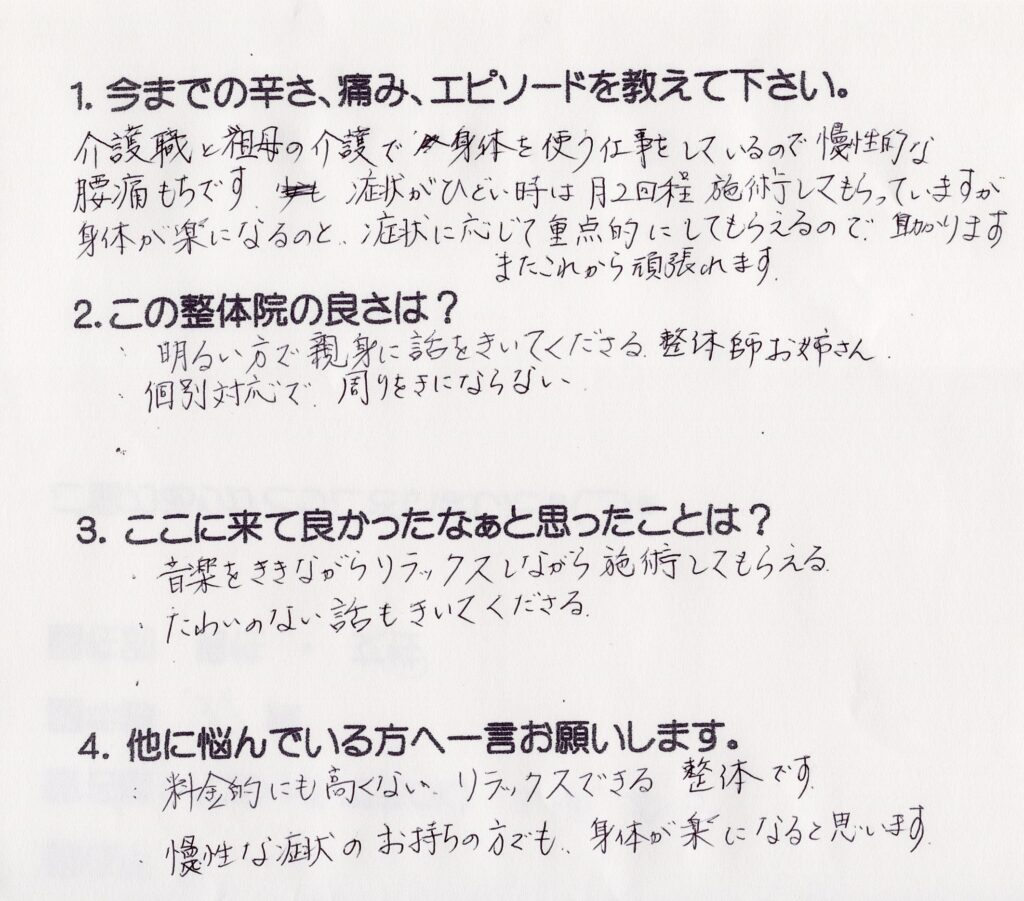 1. 今までの辛さ、痛み、エピソードを教えて下さい。
介護職と祖母の介護で身体を使う仕事をしているので慢性的な
腰痛もちです. 症状がひどい時は月2回程 施術してもらっていますが
身体が楽になるのと、症状に応じて重点的にしてもらえるので、助かります
またこれから頑張れます.
2. この整体院の良さは？
・明るい方で親身に話をきいてくださる. 整体師お姉さん.
・個別対応で、周りをきにならない
3. ここに来て良かったなぁと思ったことは？
・音楽をききながらリラックスしながら施術してもらえる.
・たわいのない話もきいてくださる.
4. 他に悩んでいる方へ一言お願いします。
・料金的にも高くない. リラックスできる 整体です.
・慢性な症状のお持ちの方でも、身体が楽になると思います.